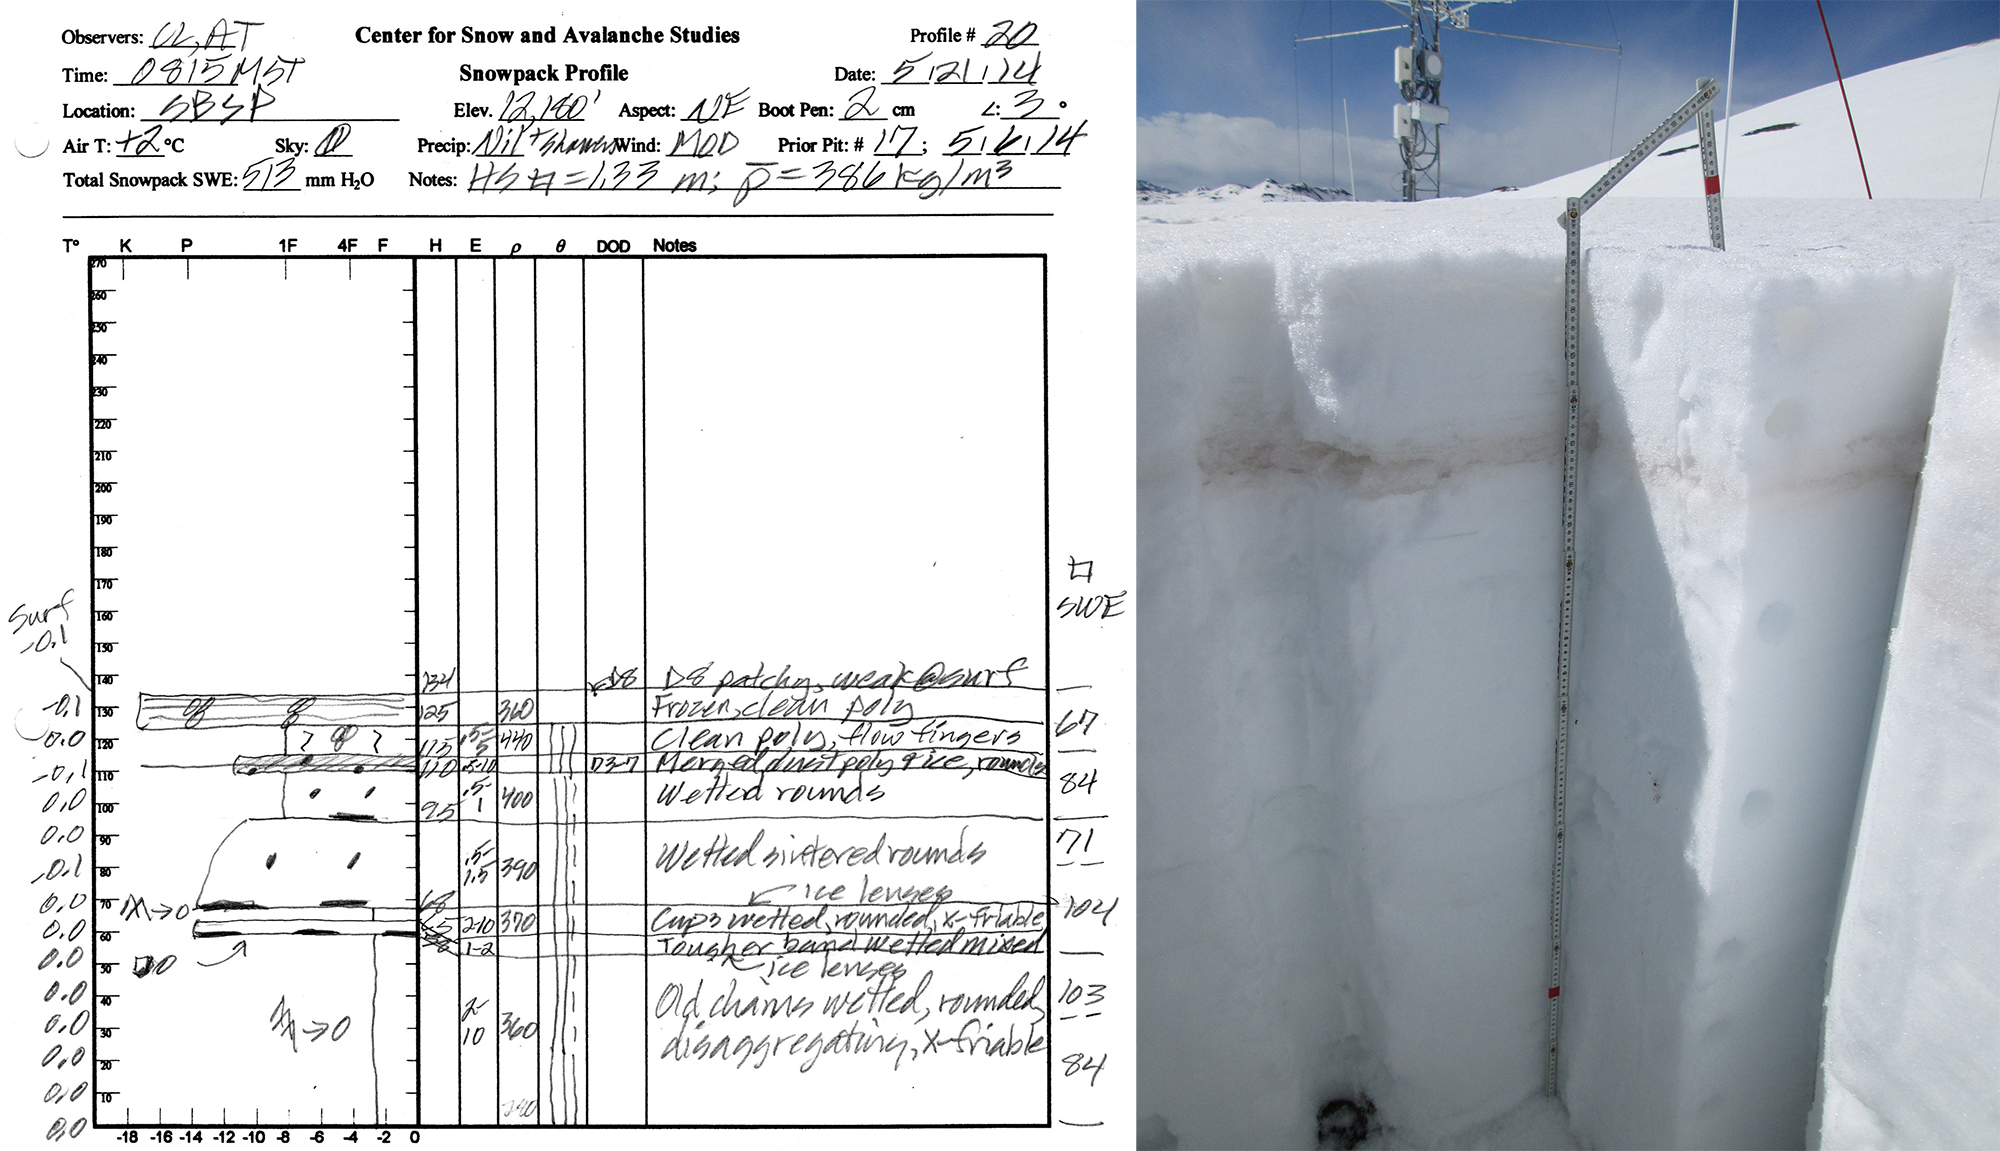 Observers: CL, AT Center for Snow and Avalanche Studies Profile # 20
Time: 0815 MST Snowpack Profile Date: 5/21/14
Location: SBSP Elev. 12,180' Aspect: NE Boot Pen: 2 cm ∠: 3 °
Air T: +2 °C Sky: Precip: Nil + showers Wind: MOD Prior Pit: # 17; 5/6/14
Total Snowpack SWE: 513 mm H₂O Notes: HS = 1.33 m; ρ̅ = 386 kg/m³
T° K P 1F 4F F H E ρ θ DOD Notes
270
260
250
240
230
220
210
200
190
180
170
160 SWE
Surf
-0.1
150
140 134 D8 D8 patchy, weak @ surf
-0.1 130 125 360 Frozen, clean poly 67
0.0 120 115 .5-5 440 Clean poly, flow fingers
-0.1 110 110 .5-10 D3-7 Merged dust poly & ice, rounds 84
0.0 100 95 .5-1 400 Wetted rounds
0.0 90 71
-0.1 80 .5-1.5 390 Wetted sintered rounds
ice lenses
0.0 70 68 104
0.0 60 2-10 370 Cups wetted, rounded, x-friable
0.0 50 1-2 Tougher band wetted mixed
ice lenses
0.0 40 Old chains wetted, rounded, 103
0.0 30 2-10 360 disaggregating, x-friable
0.0 20 84
0.0 10
0.0
-18 -16 -14 -12 -10 -8 -6 -4 -2 0